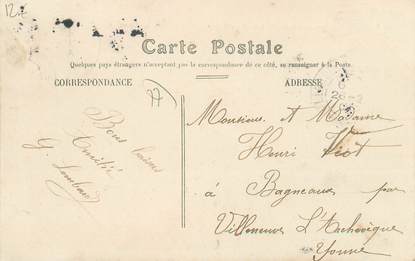 12
Carte Postale
Quelques pays étrangers n'acceptent pas la correspondance de ce côté, se renseigner à la Poste.
CORRESPONDANCE
ADRESSE
Bons baisers
Amitié
G.
Monsieur et Madame
Henri Viot
à Bagneaux par
Villeneuve L'Archevêque
Yonne